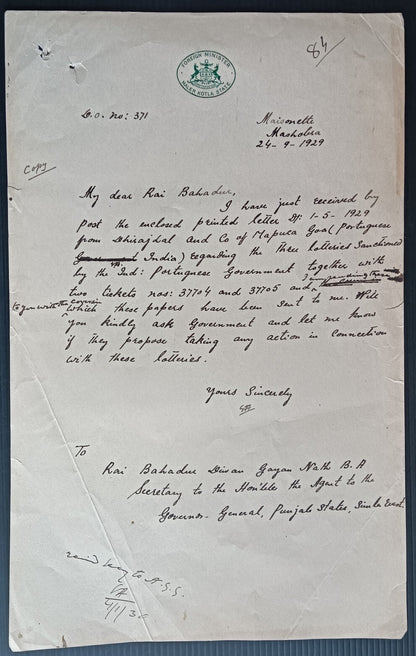 84
FOREIGN MINISTER
MALER KOTLA STATE
D.O. no: 371
Maisonette
Mashobra
24-9-1929
Copy
My dear Rai Bahadur,
I have just received by
post the enclosed printed letter Df: 1-5-1929
from Dhirajbal and Co of Mapuca Goa (Portuguese
India) regarding the three lotteries Sanctioned
by the Ind: Portuguese Government together with
two tickets nos: 37704 and 37705 and, I am sending these
to you with the cover in
which these papers have been sent to me. Will
you kindly ask Government and let me know
if they propose taking any action in connection
with these lotteries.
Yours Sincerely
To
Rai Bahadur Diwan Gayan Nath B.A
Secretary to the Hon'ble the Agent to the
Governor-General, Punjab States, Simla East.
to A.G.G.